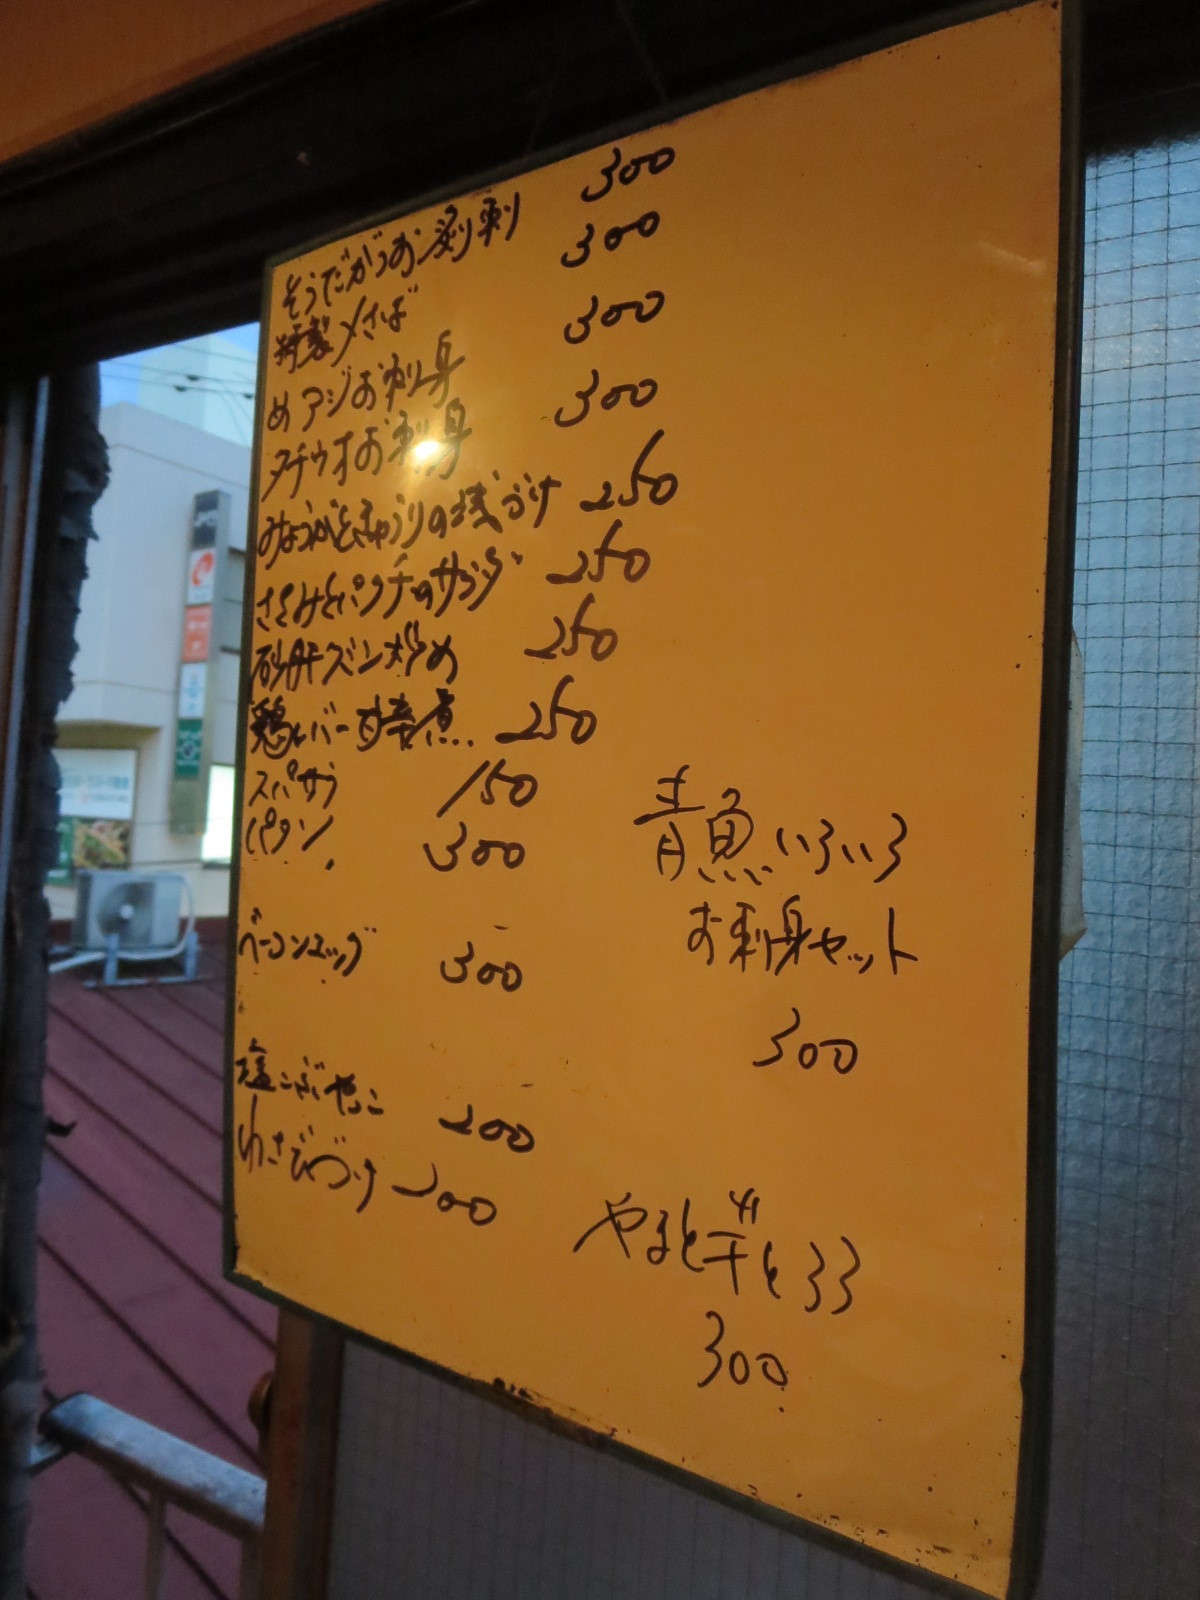 そうだがつお 刺 300
特製〆さば 300
めアジお刺身 300
タチウオお刺身 300
みょうがときゅうりの浅づけ 250
ささみとパクチーのサラダ 250
砂肝ズンポ炒め 250
鶏レバー甘辛煮 250
スパサラ 150
パタン 300
ベーコンエッグ 300
塩こぶやっこ 200
わさびづけ 200
青魚いろいろ
お刺身セット
300
やまと芋とろろ
300